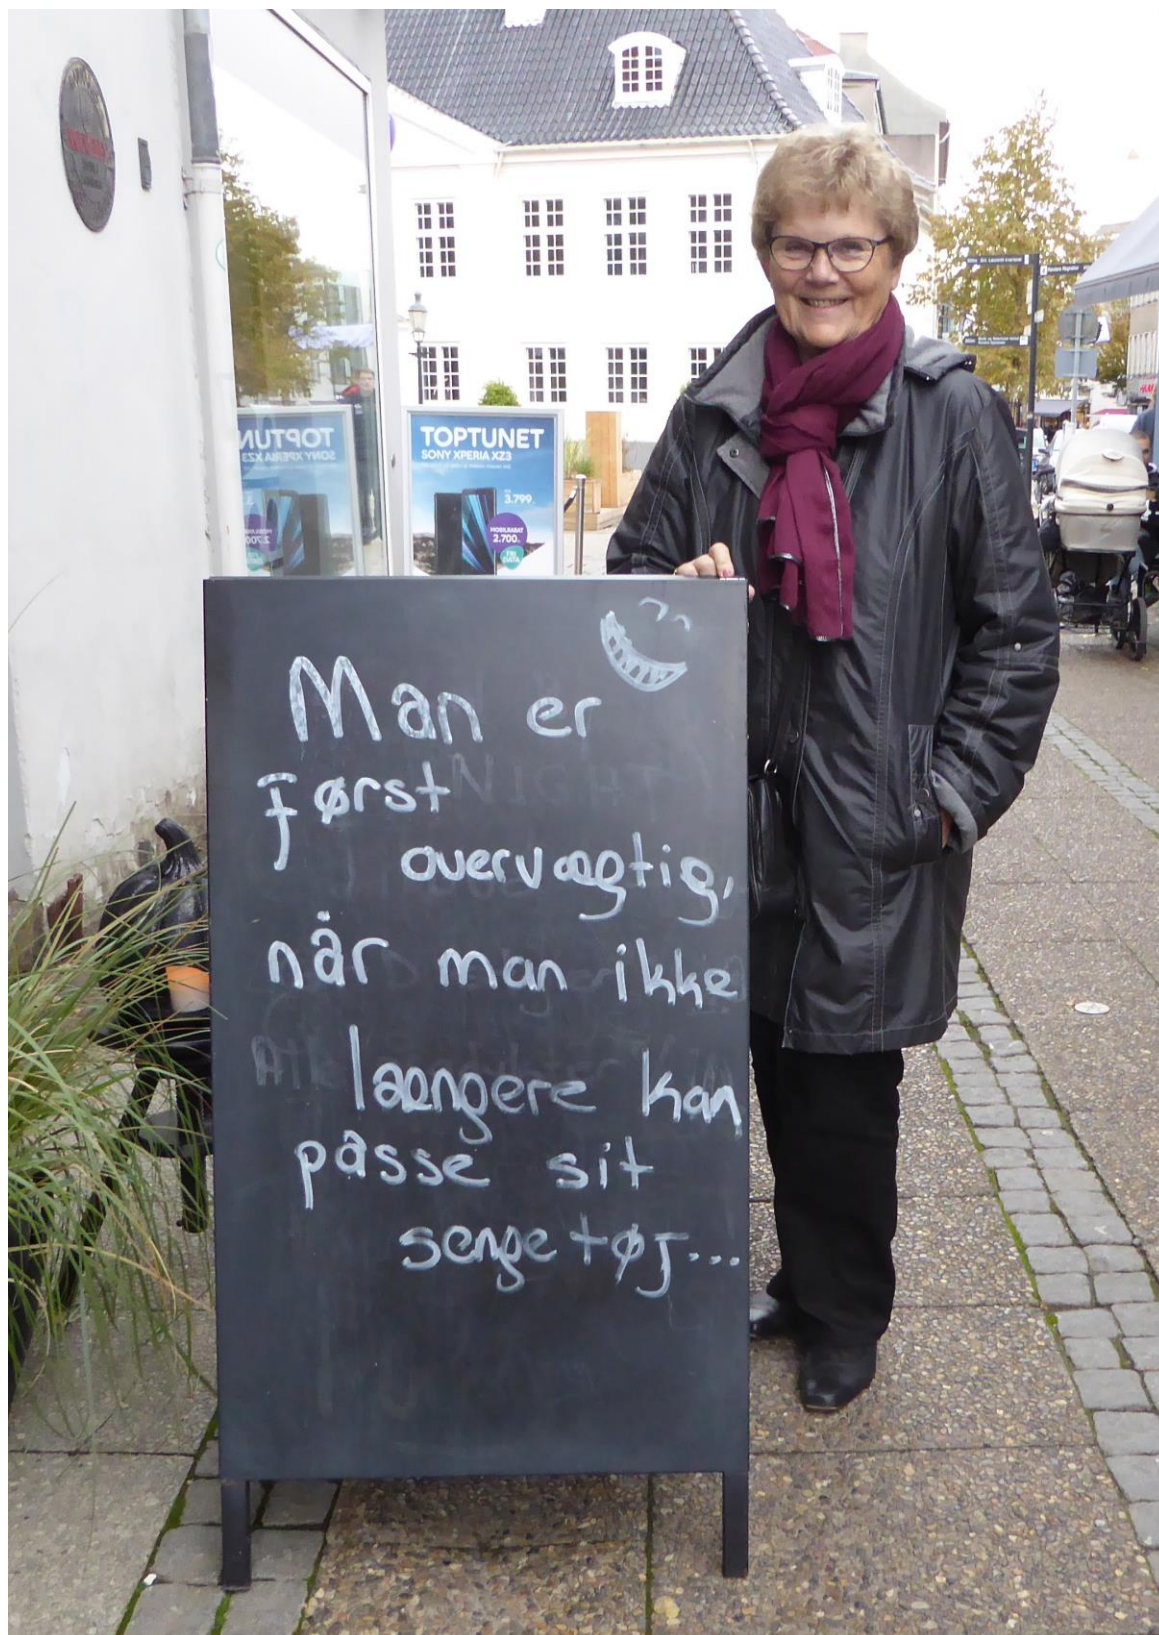 TOPTUNET
SONY XPERIA XZ3
3.799.
MOBILRABAT
2.700.
FRI
DATA
Man er
først
overvægtig,
når man ikke
længere kan
passe sit
sengetøj...